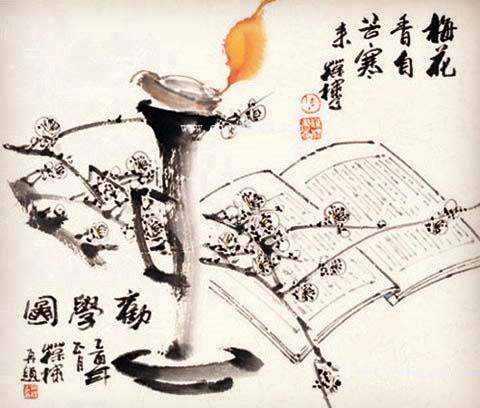 梅花
香自
苦寒
来
勸學圖
乙酉年
正月
再題